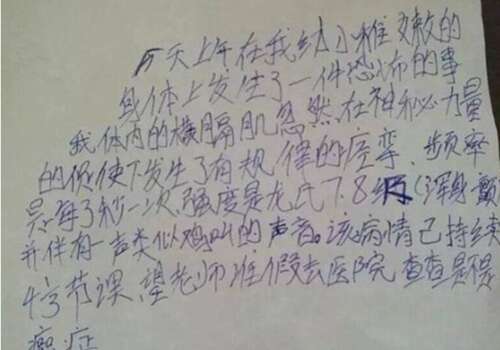 今天上午在我幼小稚嫩的
身体上发生了一件恐怖的事
我体内的横膈肌忽然在神秘力量
的促使下发生了有规律的痉挛.频率
是每3秒一次,强度是龙氏7.8级(浑身颤
并伴有一声类似鸡叫的声音。该病情已持续
4字节课,望老师准假去医院查查是不是
癌症